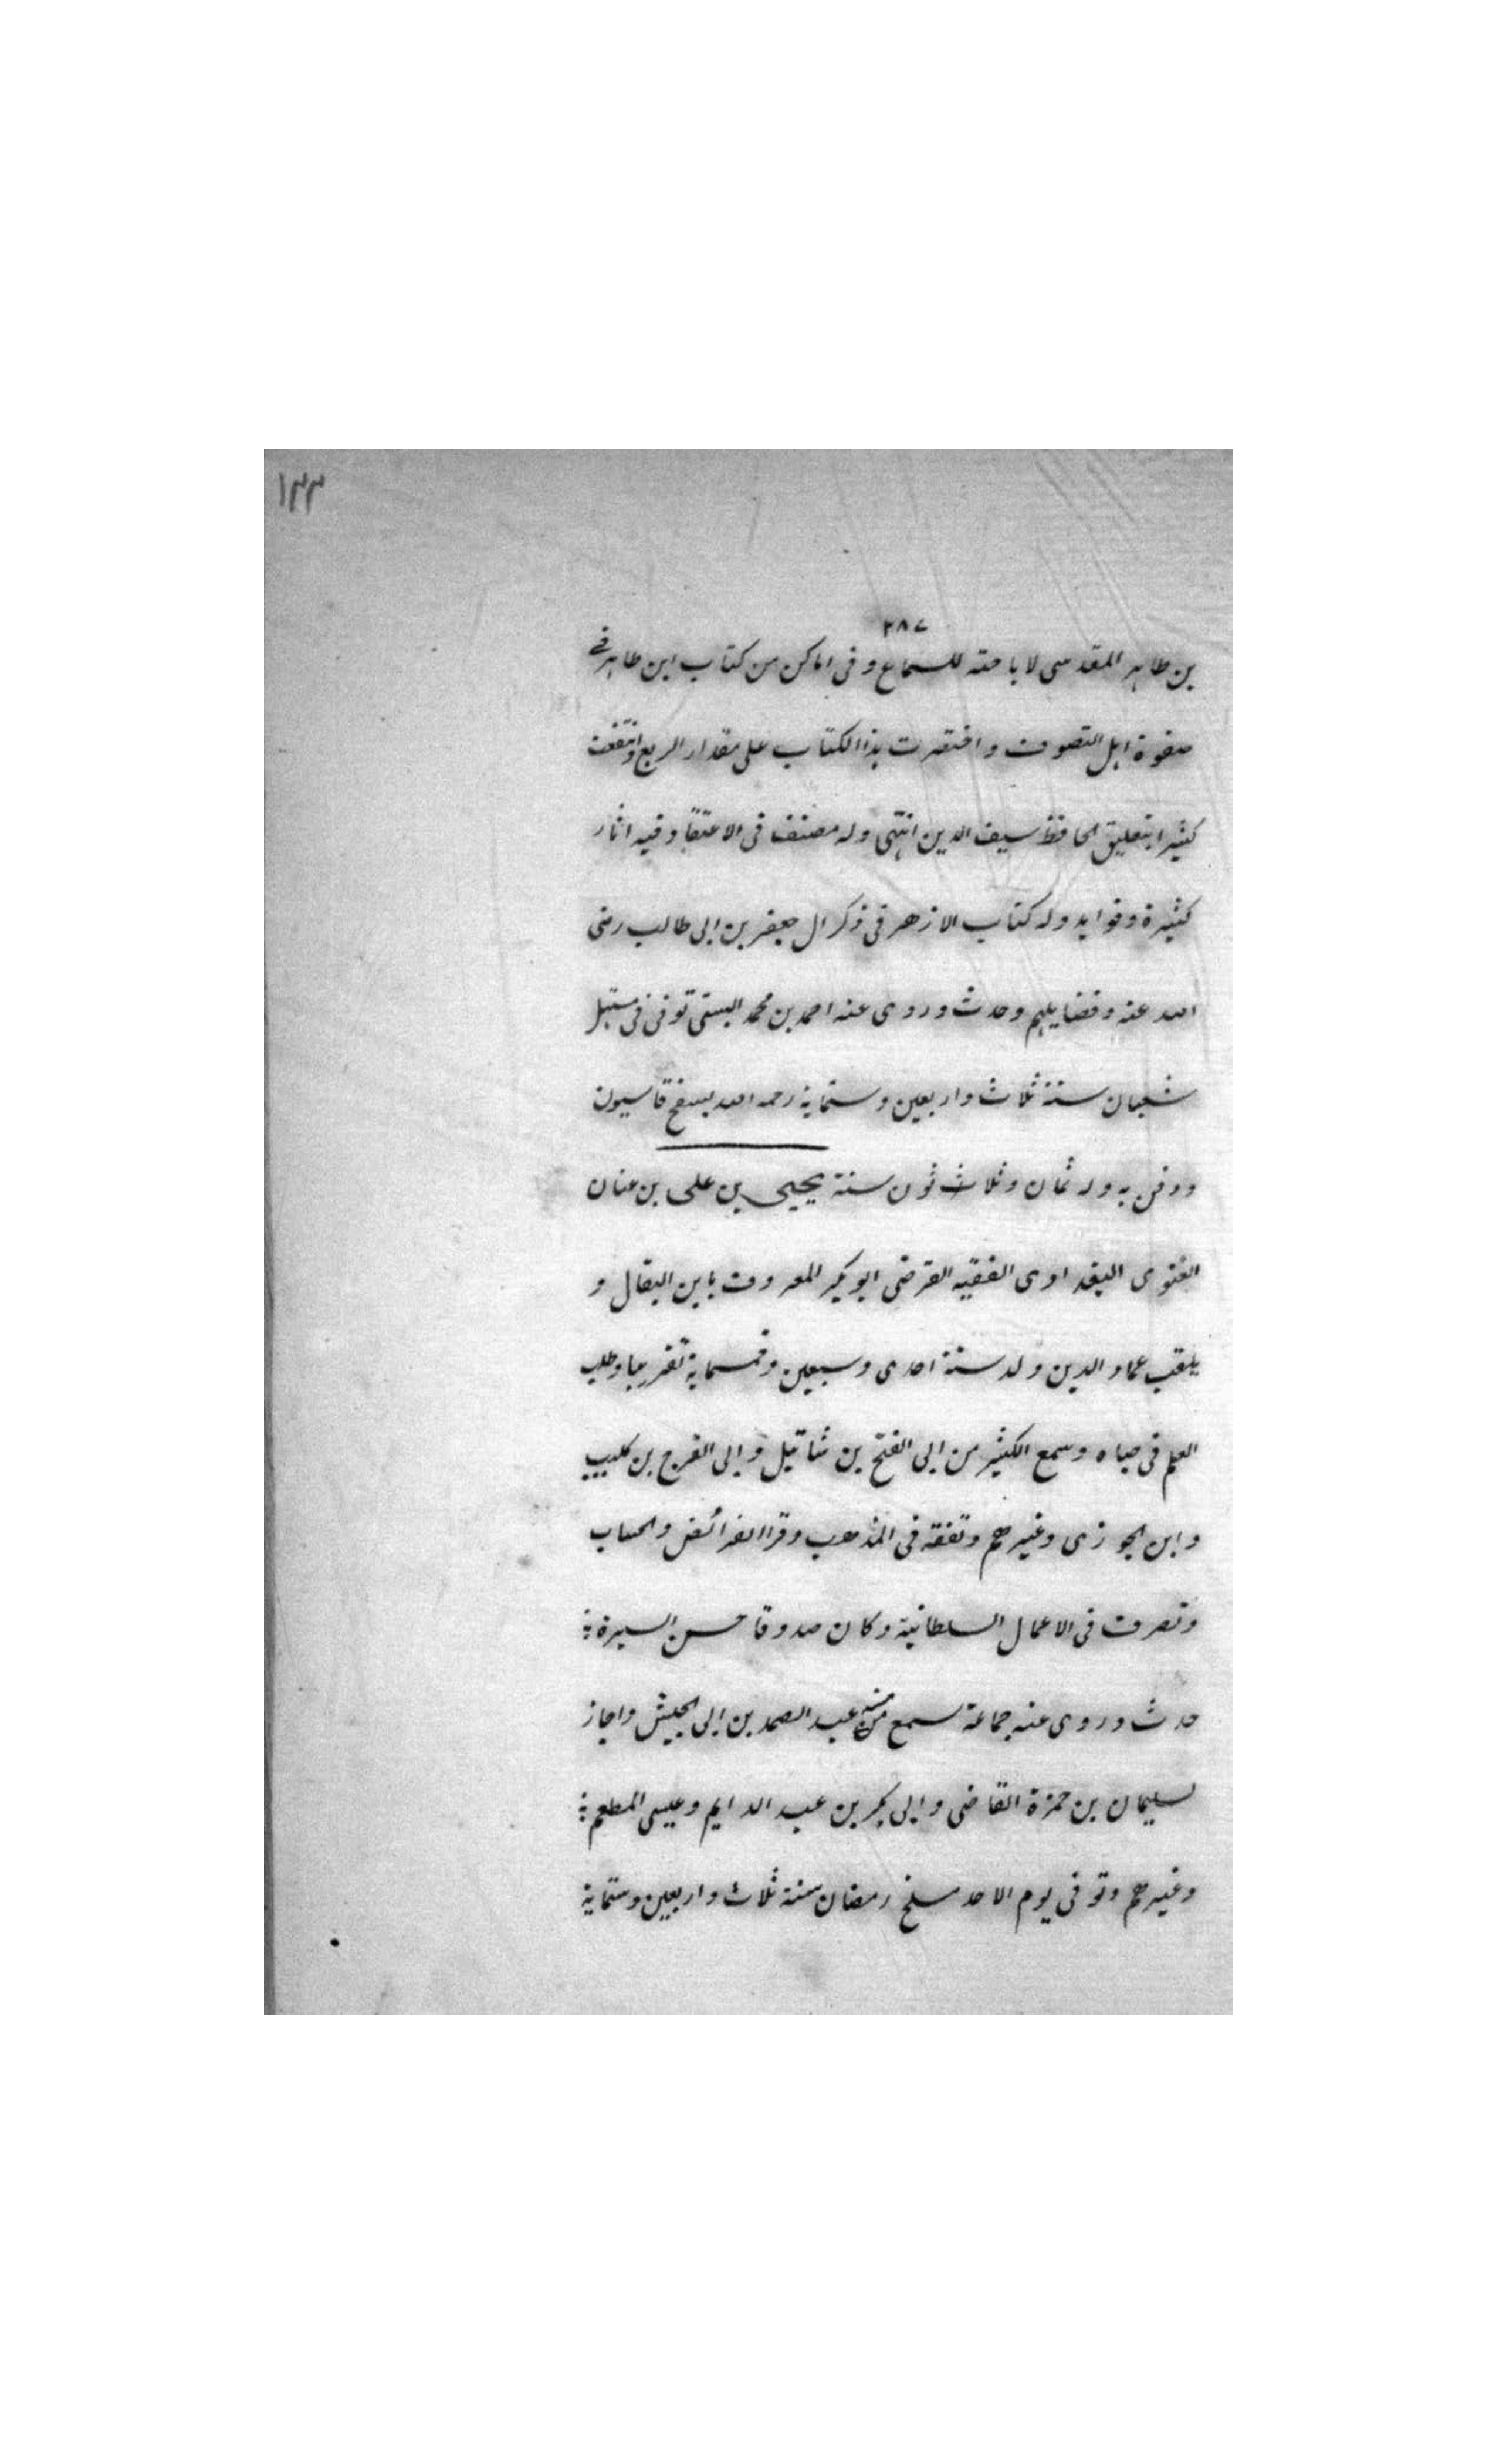 ١٣٣
٢٨٧
بن طاهر المقدسي لاباحته للسماع و في اماكن من كتاب ابن طاهر في
صفوة اهل التصوف و اختصرت هذا الكتاب على مقدار الربع وانتفعت
كثيرا بتعليق الحافظ سيف الدين انتهى وله مصنف في الاعتقاد فيه اثار
كثيرة وفوايد وله كتاب الازهر في ذكر ال جعفر بن ابي طالب رضى
الله عنه وفضايلهم وحدث وروى عنه احمد بن محمد البستى توفى في مستهل
شعبان سنة ثلاث واربعين وستماية رحمه الله بسفح قاسيون
ودفن به وله ثمان وثلاث ثون سنة يحيى بن على بن عنان
الغنوى البغدادى الفقيه الفرضى ابو بكر المعروف بابن البقال و
يلقب عماد الدين ولد سنة احدى وسبعين وخمسماية تقريبا وطلب
العلم في صباه وسمع الكثير من ابى الفتح بن شاتيل وابى الفرج بن كليب
وابن الجوزى وغيرهم وتفقه في المذهب وقرا الفرائض والحساب
وتصرف في الاعمال السلطانية وكان صدوقا حسن السيرة
حدث وروى عنه جماعة سمع منه عبد الصمد بن ابى الجيش واجاز
لسليمان بن حمزة القاضى وابى بكر بن عبد الدايم وعيسى المطعم
وغيرهم وتوفى يوم الاحد سلخ رمضان سنة ثلاث واربعين وستماية